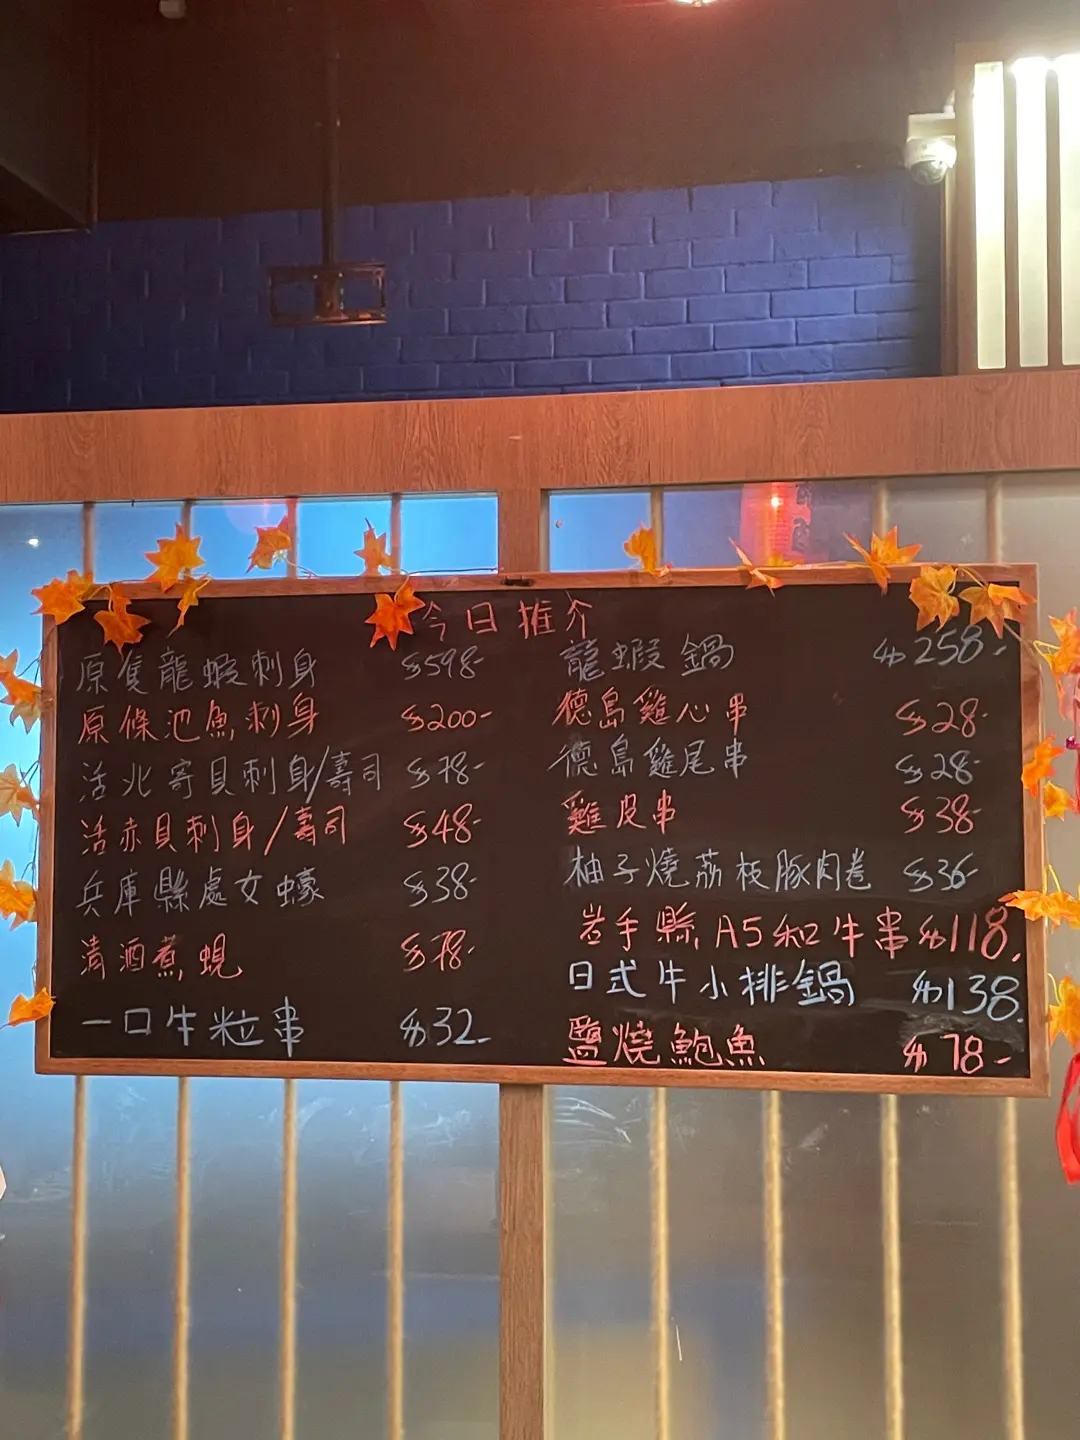 今日推介
原隻龍蝦刺身 $598-
原條池魚刺身 $200-
活北寄貝刺身/壽司 $78-
活赤貝刺身/壽司 $48-
兵庫縣處女蠔 $38-
清酒煮蜆 $78-
一口牛粒串 $32-
龍蝦鍋 $258-
德島雞心串 $28-
德島雞尾串 $28-
雞皮串 $38-
柚子燒荔枝豚肉卷 $36-
岩手縣A5和牛串 $118-
日式牛小排鍋 $138-
鹽燒鮑魚 $78-